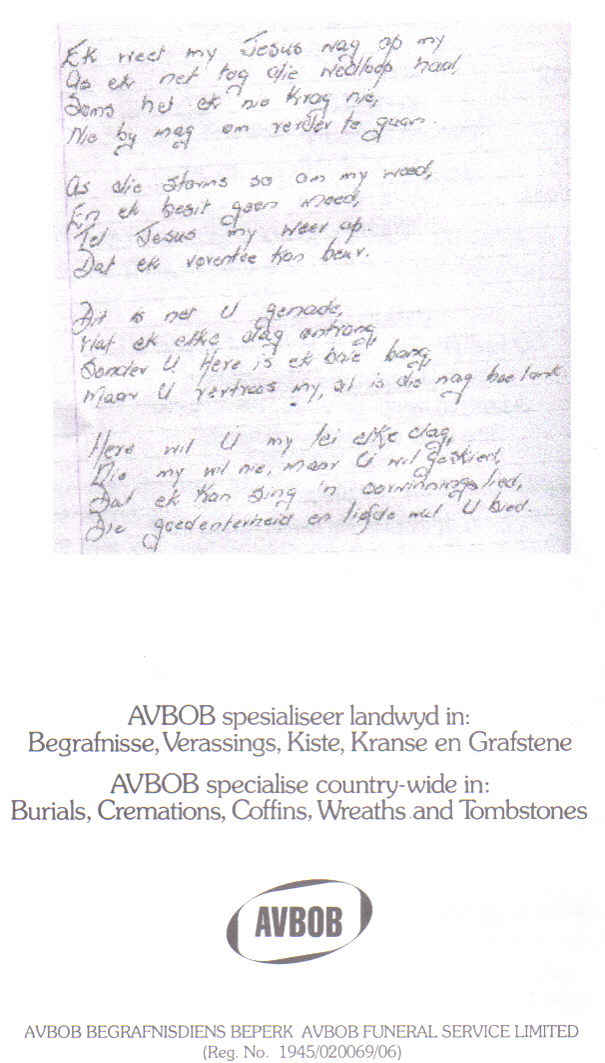 Ek weet my Jesus wag op my
As ek net tog die wedloop haal,
Soms het ek nie krag nie,
Nie by mag om verder te gaan.
As die storms so om my woed,
En ek besit geen moed,
Tel Jesus my weer op.
Dat ek vorentoe kan beur.
Dit is net U genade,
Wat ek elke dag ontvang
Sonder U Here is ek baie bang,
Maar U vertroos my, al is die nag hoe lank
Here wil U my lei elke dag,
Nie my wil nie, maar U wil geskied,
Dat ek kan sing 'n oorwinningslied,
Die goedentierheid en liefde wat U bied.
AVBOB spesialiseer landwyd in:
Begrafnisse, Verassings, Kiste, Kranse en Grafstene
AVBOB specialise country-wide in:
Burials, Cremations, Coffins, Wreaths and Tombstones
AVBOB
AVBOB BEGRAFNISDIENS BEPERK AVBOB FUNERAL SERVICE LIMITED
(Reg. No. 1945/020069/06)